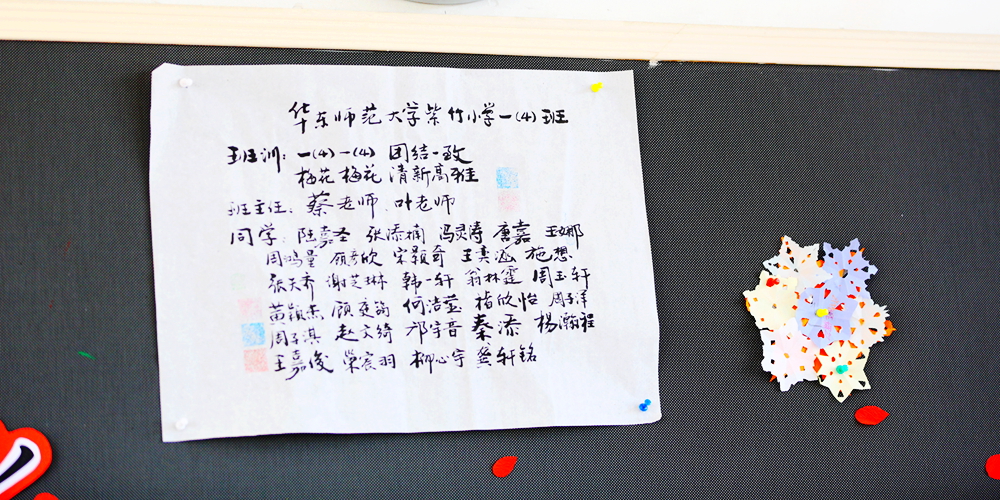 华东师范大学紫竹小学一(4)班
班训：一(4)一(4) 团结一致
梅花梅花 清新高雅
班主任：蔡老师 叶老师
同学：陆嘉圣 张添楠 冯灵涛 唐嘉 王娜
周鸿量 顾彦欣 宋颖奇 王真涵 施想
张天乔 谢芝琳 韩一轩 翁林霆 周玉轩
黄颖杰 顾庭韵 何浩莹 楷欣怡 周子洋
周子淇 赵文绮 邝宇晋 秦添 杨瀚程
王嘉俊 荣宸羽 柳心宇 龚轩铭